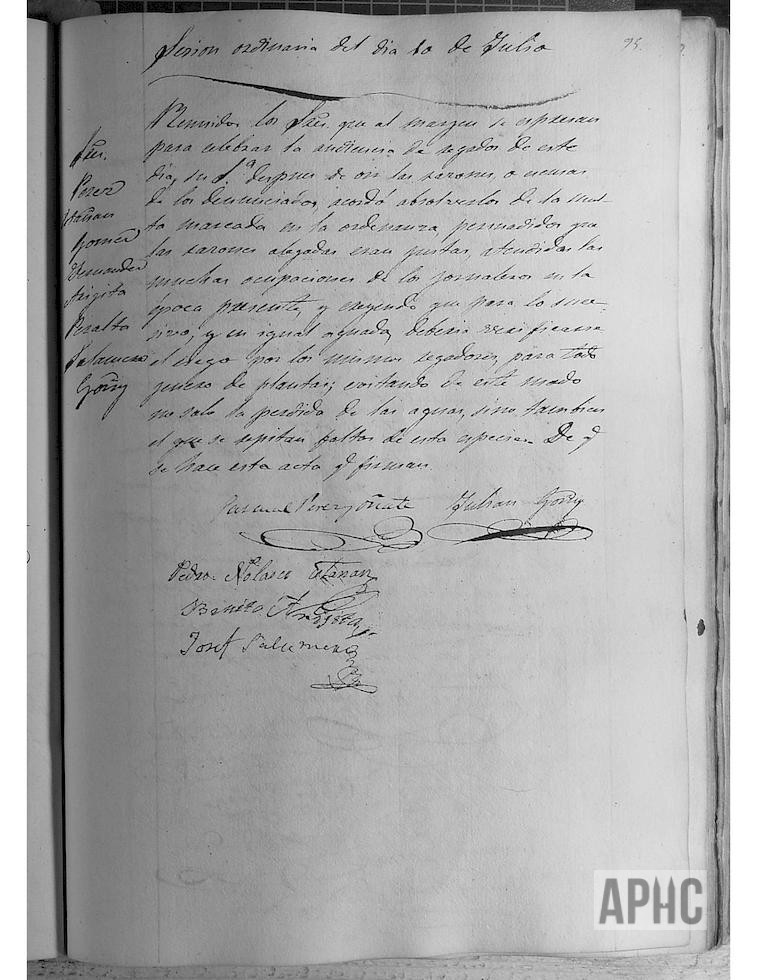 Sesion ordinaria del dia 10 de Julio
95.
Sres.
Perez
Atañan
Gomez
Hernandez
Arigita
Peralta
Salamero
Goñy
Reunidos los Sres. que al margen se espresan
para celebrar la audiencia de regados de este
dia, su S.ª despues de oir las razones, o escusas
de los denunciados, acordó absolverlos de la mul-
ta marcada en la ordenanza, persuadidos que
las razones alegadas eran justas, atendidas las
muchas ocupaciones de los jornaleros en la
época presente, y creyendo que para lo suce-
sivo, y en igual aguada, deberia verificarse
el riego por los mismos regadores, para todo
genero de plantas; evitando de este modo
no solo la perdida de las aguas, sino tambien
el que se repitan faltas de esta especie. De q
se hace esta acta q firman.
Pascual Perez Oñate Julian Goñy
Pedro Nolasco Atañan
Benito Arigita
Josef Salamero
APHC